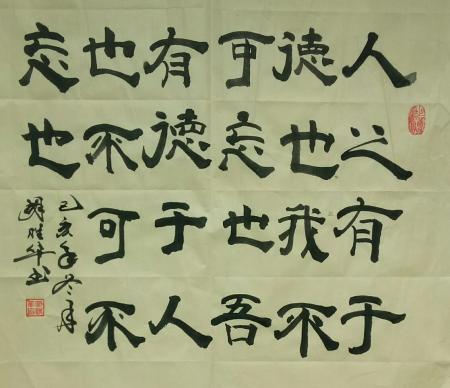 人之有于
德也我不
可忘也吾
有德于人
也不可不
忘也
己亥年冬月
胡胜华书